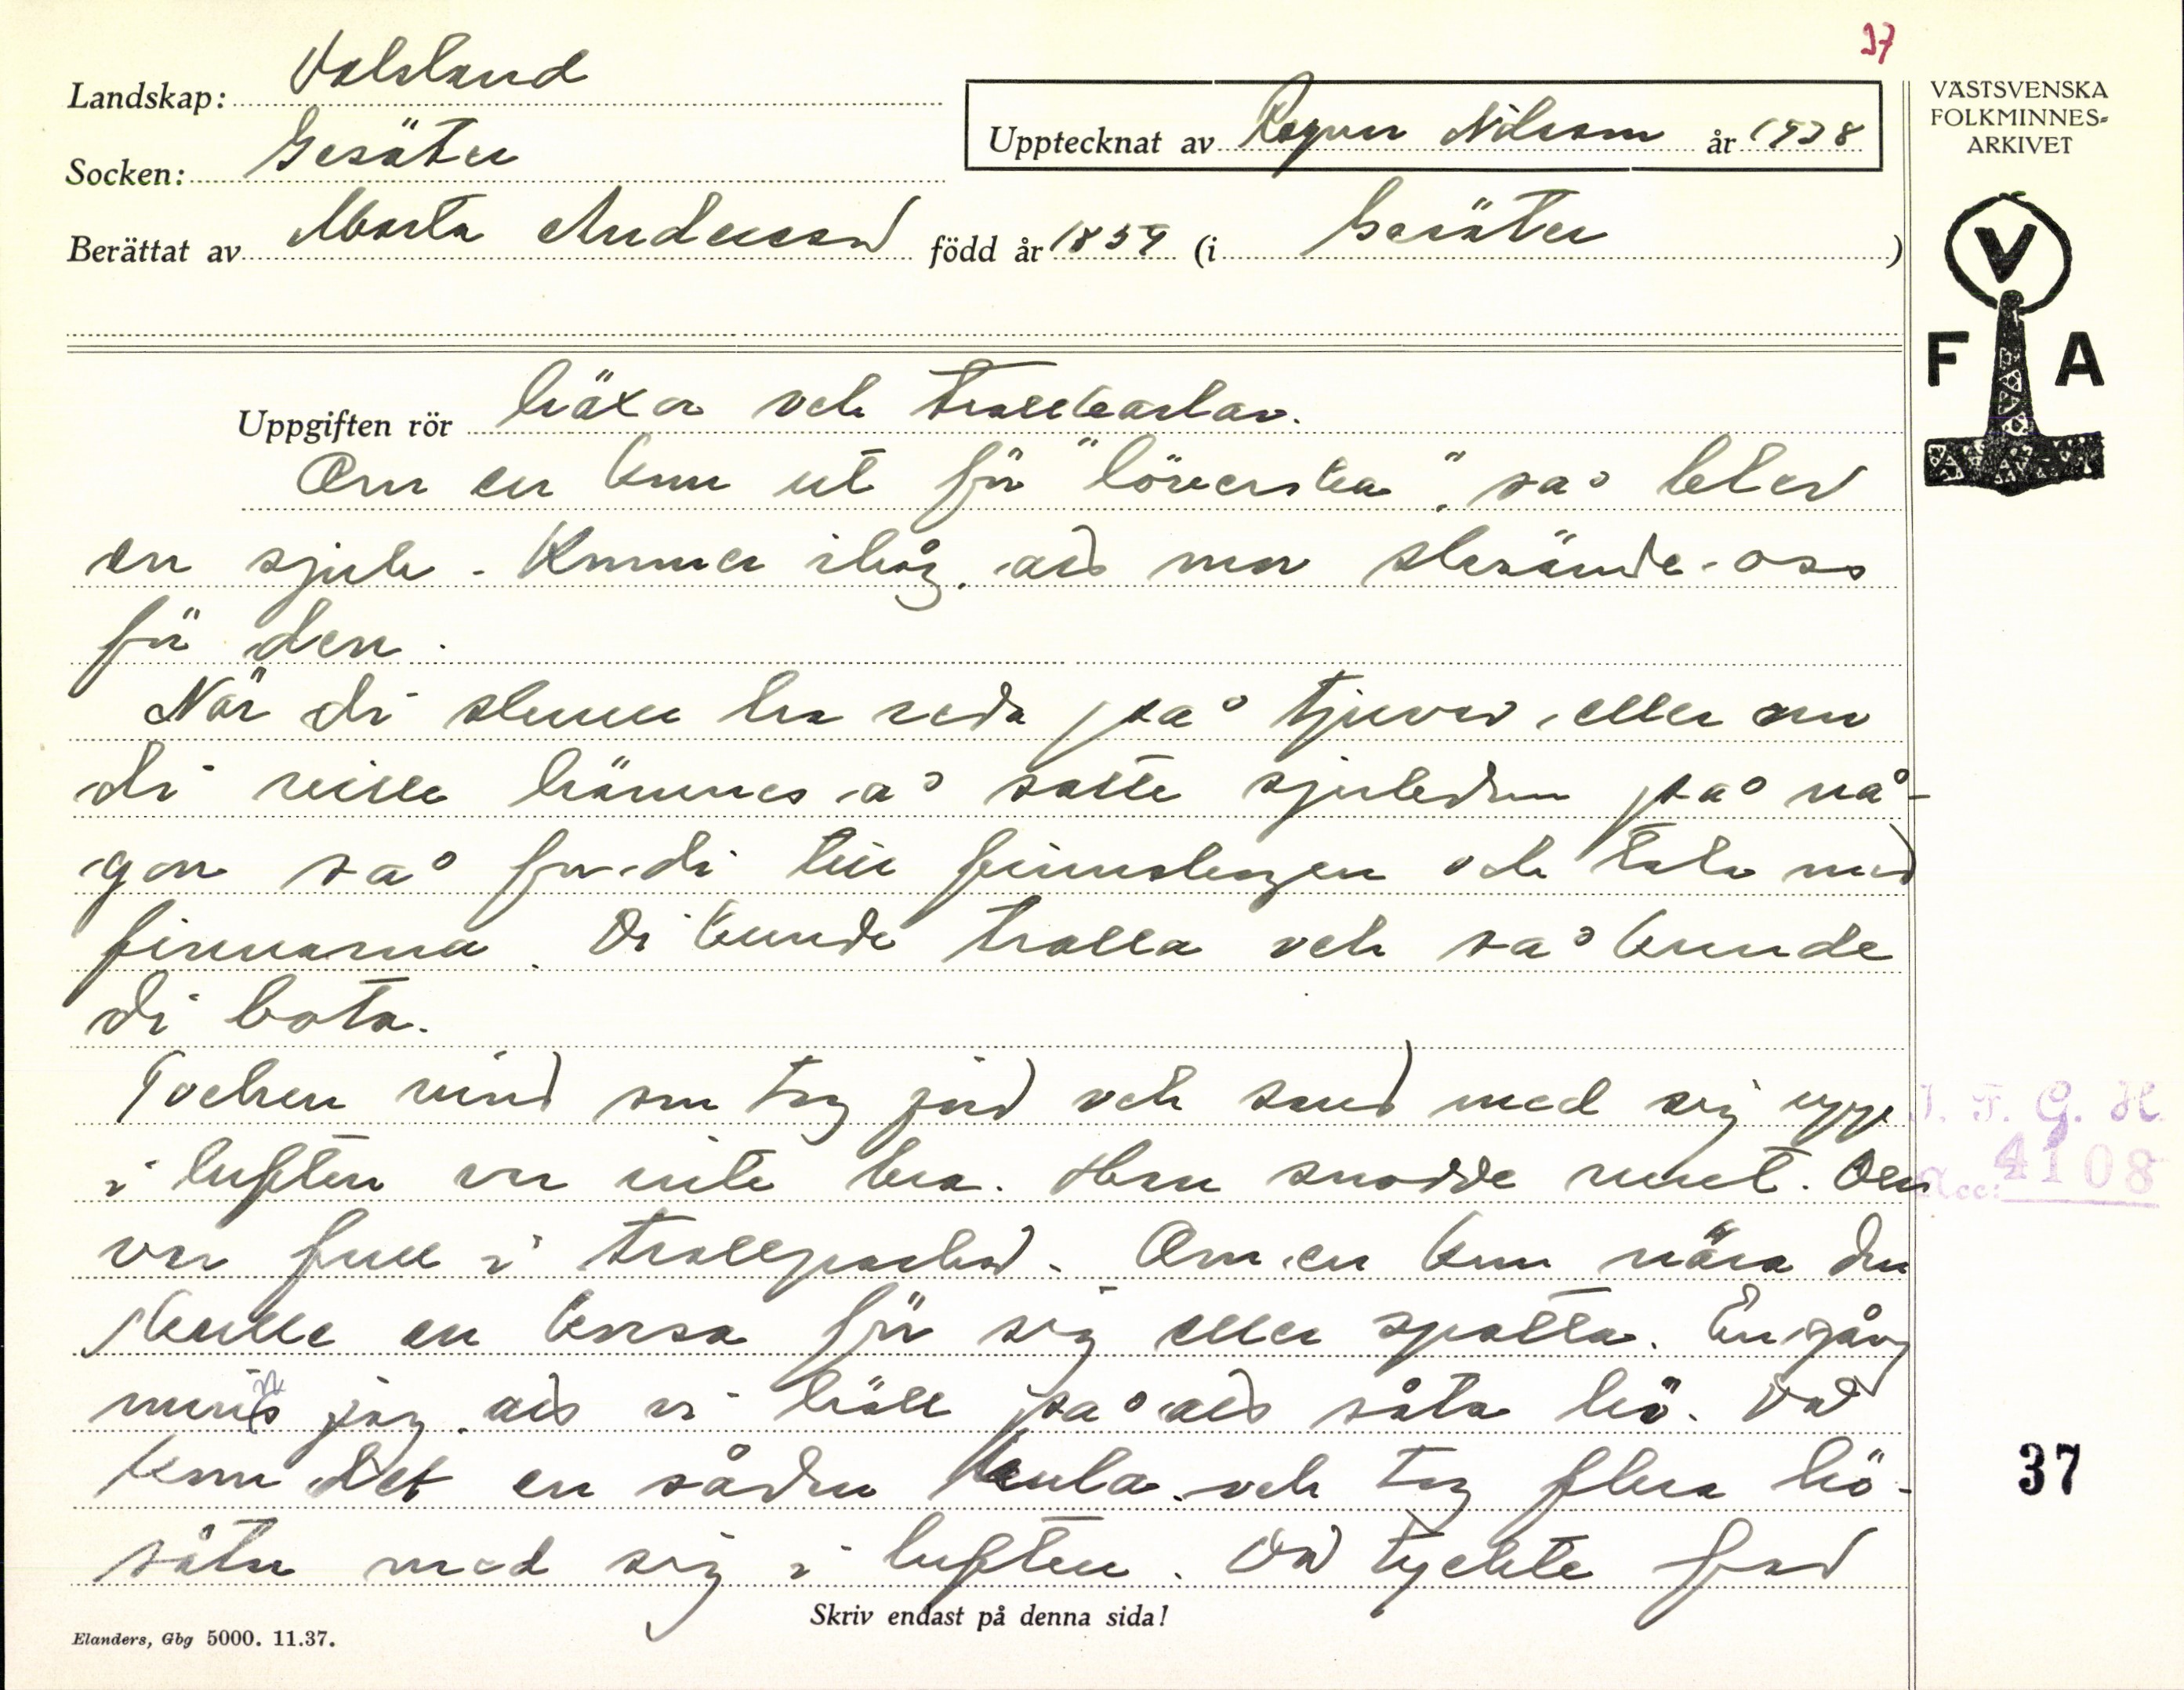 37
Landskap: Dalsland
Socken: Gesäter
Upptecknat av Ragnar Nilsson år 1938
Berättat av Marta Andersson född år 1859 (i Gesäter)
VÄSTSVENSKA
FOLKMINNES-
ARKIVET
V
F A
Uppgiften rör häxor och trollkarlar.
Om en kom ut för "löverska", så blev
en sjuk. Kommer ihåg, att mor skrämde oss
för den.
När di skulle ha reda på tjuven, eller om
di ville hämnes å satte sjukdom på nå-
gon så for di till finnskogen och tala med
finnarna. Di kunde trolla och så kunde
di bota.
Tocken vind som tog jord och sand med sig upp
i luften var inte bra. Han snodde runt. Den
var full i trollpackor. Om en kom nära den
skulle en korsa för sig eller spotta. En gång
minns jag att vi höll på att såta hö. Då
kom det en sådan kula och tog flera hö-
såtar med sig i luften. Då tyckte far
J. F. G. H.
Acc: 4108
37
Skriv endast på denna sida!
Elanders, Gbg 5000. 11.37.